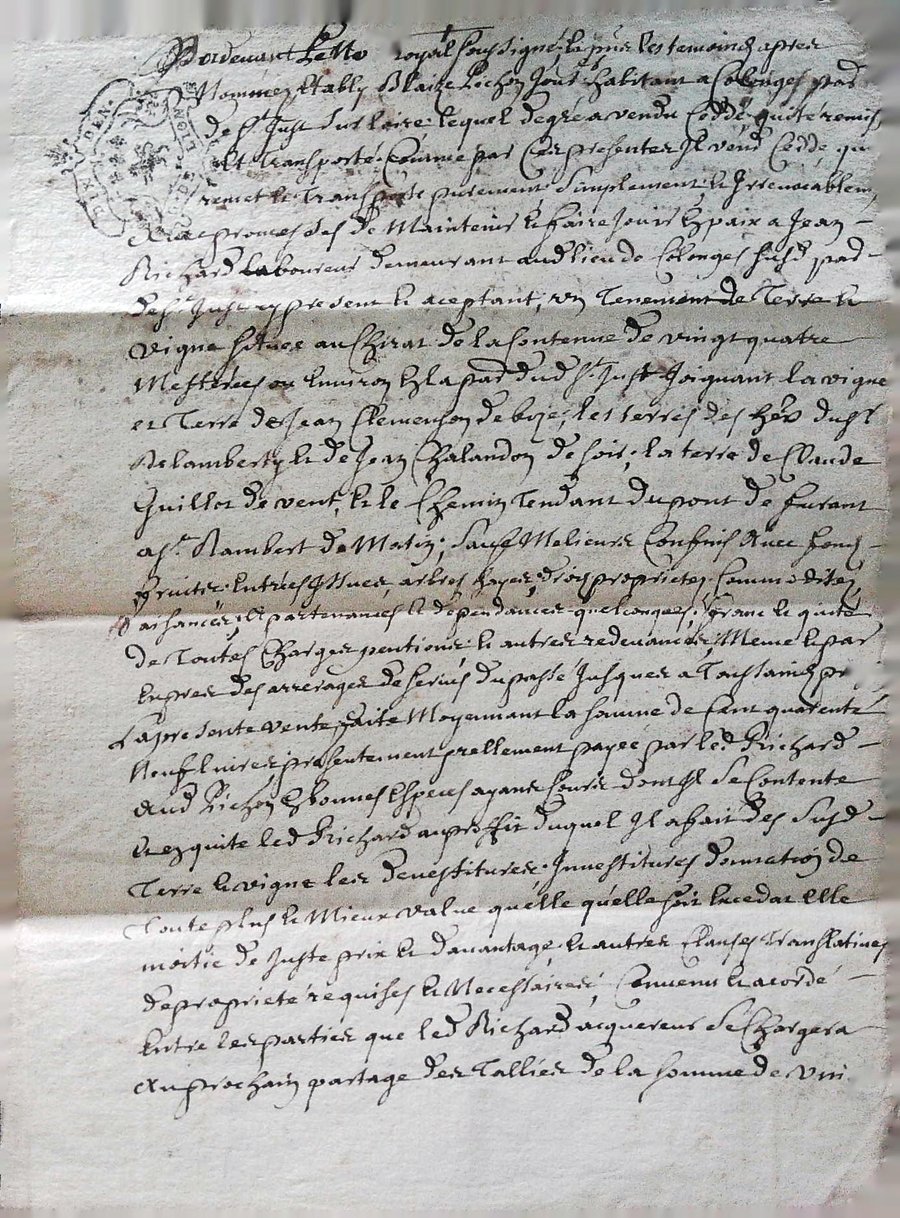 Pardevant Le No royal soussigné, & pnt les temoins apres
Nommez Etably Blaize Pichon Jour. habitant a Colonges parr
de St Just sur loire, lequel de gré a vendu Ceddé quité remis
et transporté, Comme par Ces presentes Il vend Cedde qu
remet & Transporte purement Simplement & Irrevocablem
Avec promesses de Maintenir & faire Jouir En paix a Jean
Richard laboureur demeurant aud lieu de Colonges susd parr
de St Just cy present & aceptant, un Tenement de Terre &
Vigne scituee au Chirat de la Contenue de vingt quatre
Mesterées ou Environ En la parr dud St Just Joignant la vigne
et Terre de Jean Clemenson de bize, les terres des hers du sr
Delamberty & de Jean Chalandon de soir, la terre de Claude
Guillot de vent, & le Chemin Tendant du pont de furant
a St Rambert de Matin, Sauf Melieurs Confins Avec fonds
fruits Entrées Issues, arbres hayes, drois proprietes, Commoditez
aisances, Apartenances & dependances quelconques, franc & quitte
de Toutes Charges pentions & autres redevances, Meme & par
Expres des arrerages de servis du passé Jusques a Toussaints pr
La presente vente faite Moyennant la somme de Cent quarente
Neuf livres, presentement reellement payée par led Richard
aud Pichon En bonnes Especes ayant Cours dont Il se Contente
et en quite led Richard au proffit duquel Il a fait des susd
Terre & vigne les devestitures, Investitures donnation de
Toute plus & Mieux value qu'elle qu'elle soit Excedat Elle
moitie de Juste prix & davantage, & autres Clauses Translatives
de proprieté requises & Necessaires, Convenu & acordé
Entre les parties que led Richard acquereur se Chargera
Au prochain partage des Tallies de la somme de vin